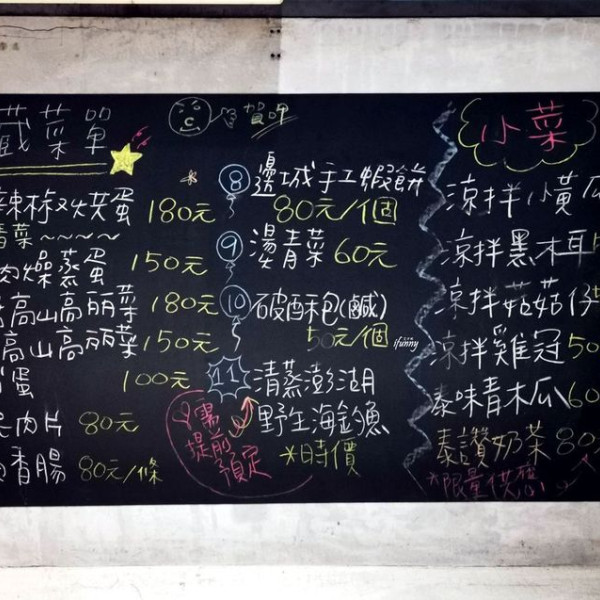 藏菜單
辣椒烘蛋 180元
青菜~~~~
肉燥蒸蛋 150元
高山高丽菜 180元
高山高丽菜 150元
蛋 100元
肉片 80元
香腸 80元/條
賀呷
⑧ 邊城手工蝦餅
80元/個
⑨ 湯青菜 60元
⑩ 破酥包(鹹)
50元/個
11 清蒸澎湖
野生海釣魚
*時價
需
提前
預定
小菜
涼拌小黃瓜
涼拌黑木耳
涼拌菇菇
涼拌雞冠 50
泰味青木瓜 60
泰讚奶茶 80
*限量供應
ifunny